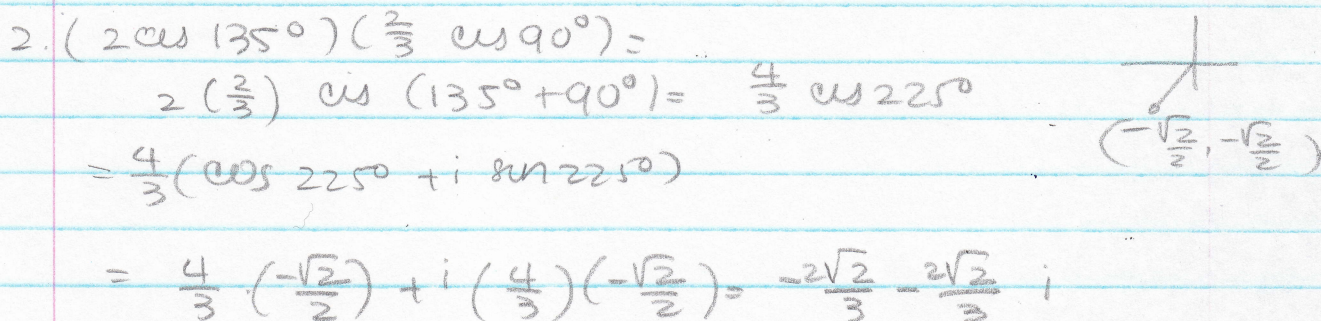 2. (2 cis 135°)(2/3 cis 90°) =
2 (2/3) cis (135° + 90°) = 4/3 cis 225°
(-√2/2, -√2/2)
= 4/3 (cos 225° + i sin 225°)
= 4/3 · (-√2/2) + i (4/3)(-√2/2) = -2√2/3 - 2√2/3 i